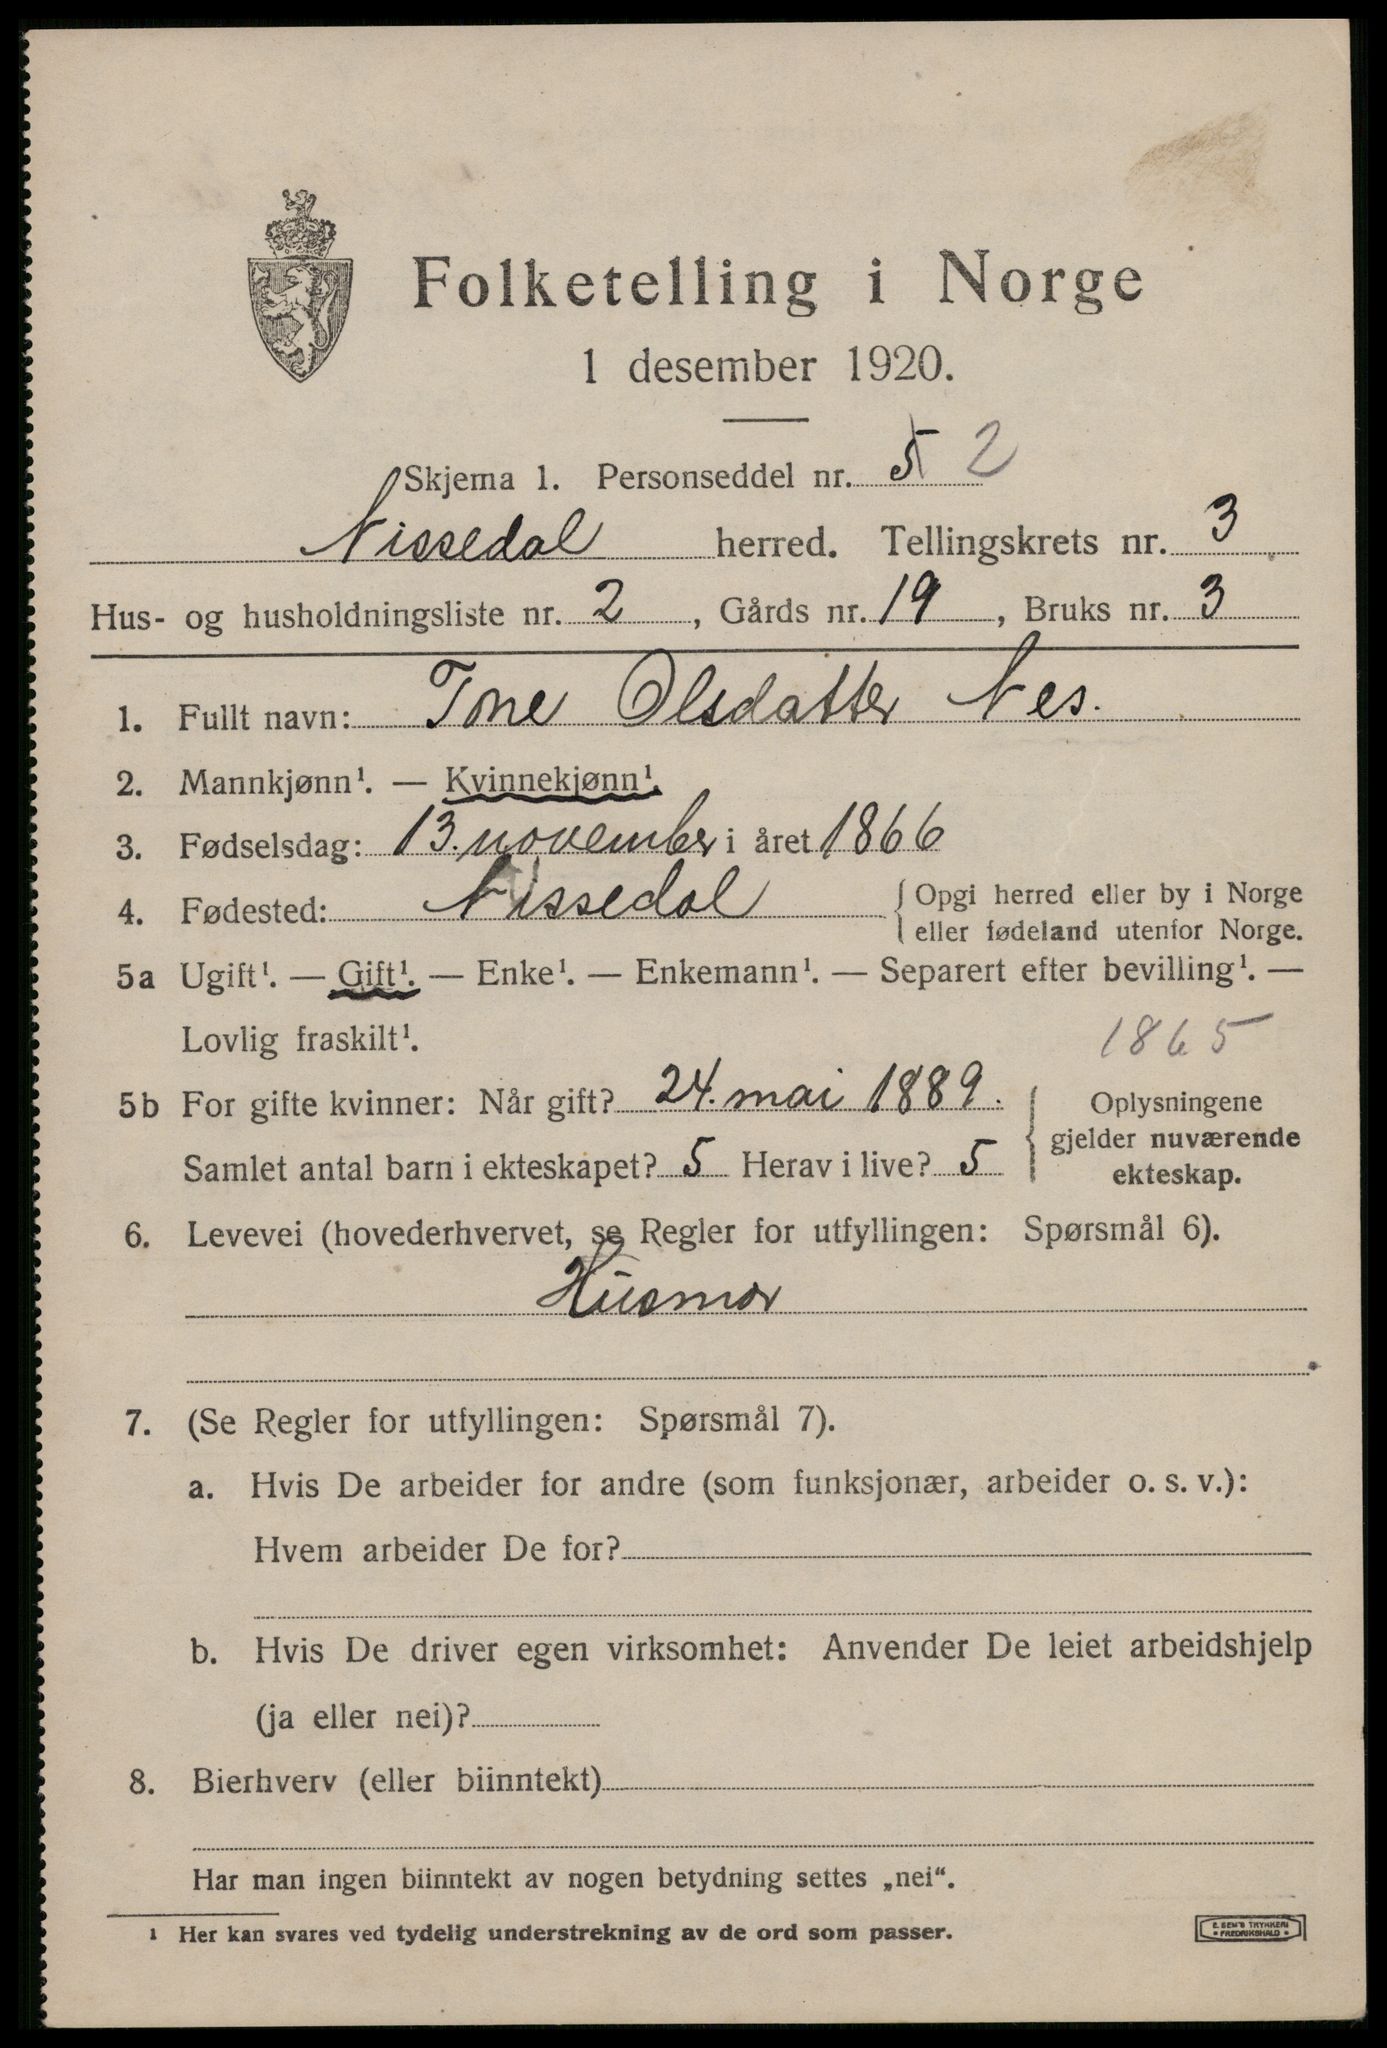 Folketelling i Norge
1 desember 1920.
Skjema 1. Personseddel nr. 5 2
Nissedal herred. Tellingskrets nr. 3
Hus- og husholdningsliste nr. 2, Gårds nr. 19, Bruks nr. 3
1. Fullt navn: Tone Olsdatter Nes.
2. Mannkjønn¹. — Kvinnekjønn¹.
3. Fødselsdag: 13. november i året 1866
4. Fødested: Nissedal { Opgi herred eller by i Norge
eller fødeland utenfor Norge.
5a Ugift¹. — Gift¹. — Enke¹. — Enkemann¹. — Separert efter bevilling¹. —
Lovlig fraskilt¹.
1865
5b For gifte kvinner: Når gift? 24. mai 1889. { Oplysningene
gjelder nuværende
Samlet antal barn i ekteskapet? 5 Herav i live? 5
ekteskap.
6. Levevei (hovederhvervet, se Regler for utfyllingen: Spørsmål 6).
Husmor
7. (Se Regler for utfyllingen: Spørsmål 7).
a. Hvis De arbeider for andre (som funksjonær, arbeider o. s. v.):
Hvem arbeider De for?
b. Hvis De driver egen virksomhet: Anvender De leiet arbeidshjelp
(ja eller nei)?
8. Bierhverv (eller biinntekt)
Har man ingen biinntekt av nogen betydning settes „nei“.
¹ Her kan svares ved tydelig understrekning av de ord som passer.
E. SEM'S TRYKKERI
• FREDRIKSHALD •